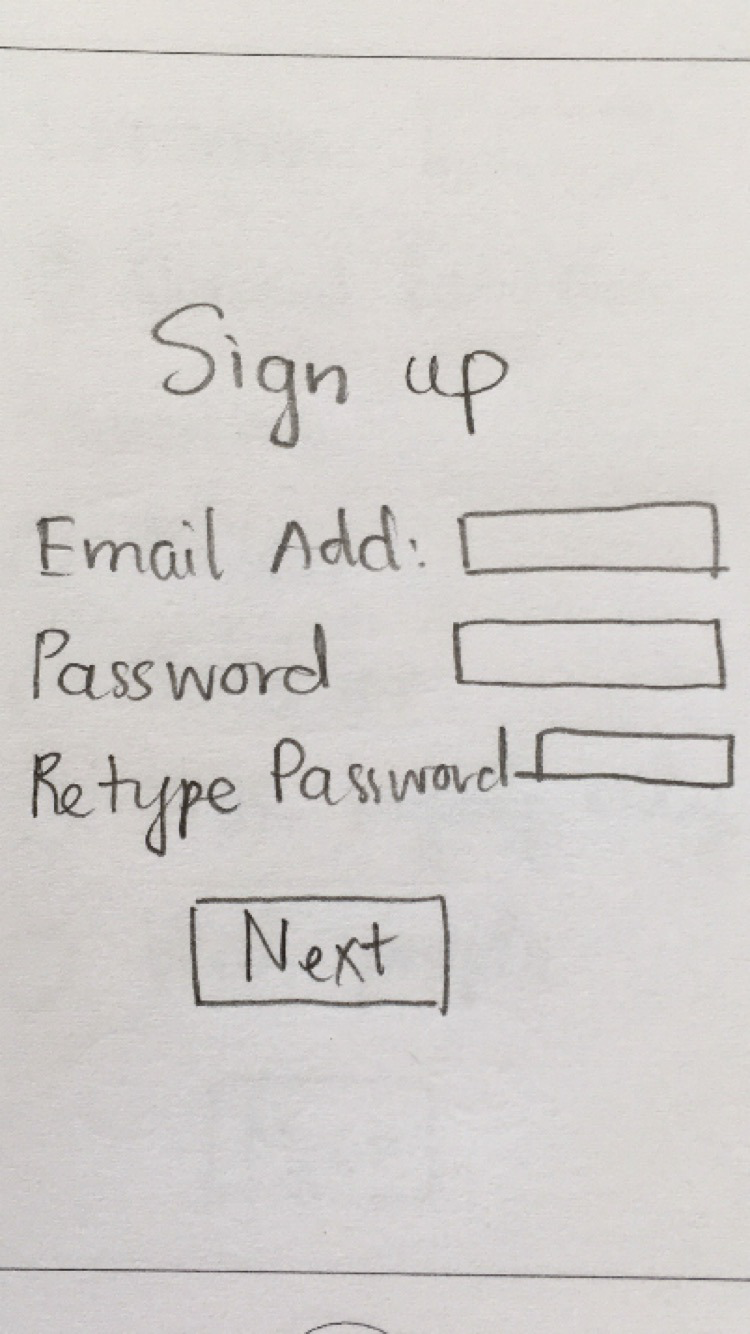 Sign up
Email Add:
Password
Retype Password
Next